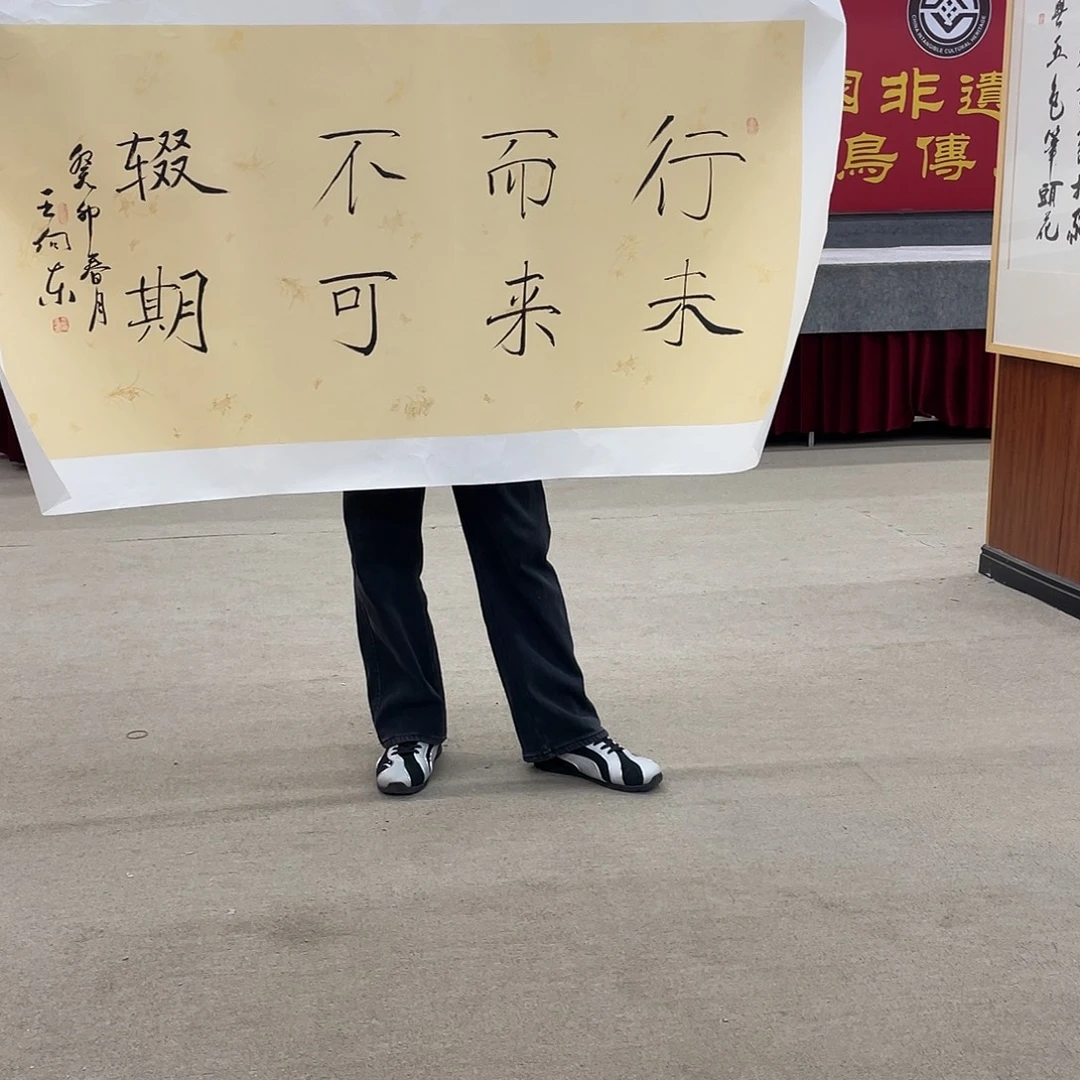 行而不辍
未来可期
癸卯春月
王向东
CHINA INTANGIBLE CULTURAL HERITAGE
非遺
鳥傳
五色筆頭花